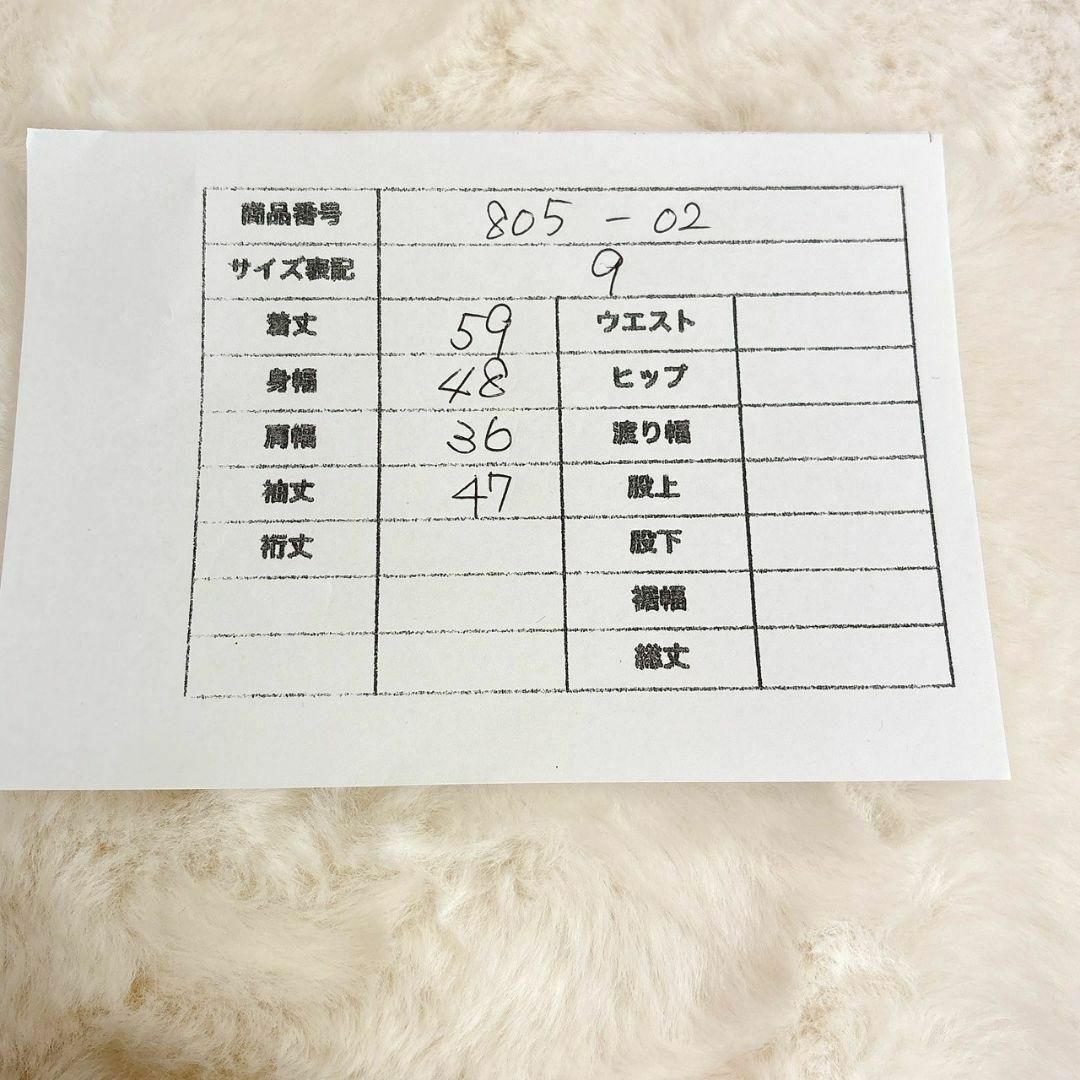 商品番号 805 - 02
サイズ表記 9
着丈 59 ウエスト
身幅 48 ヒップ
肩幅 36 渡り幅
袖丈 47 股上
裄丈 股下
裾幅
総丈